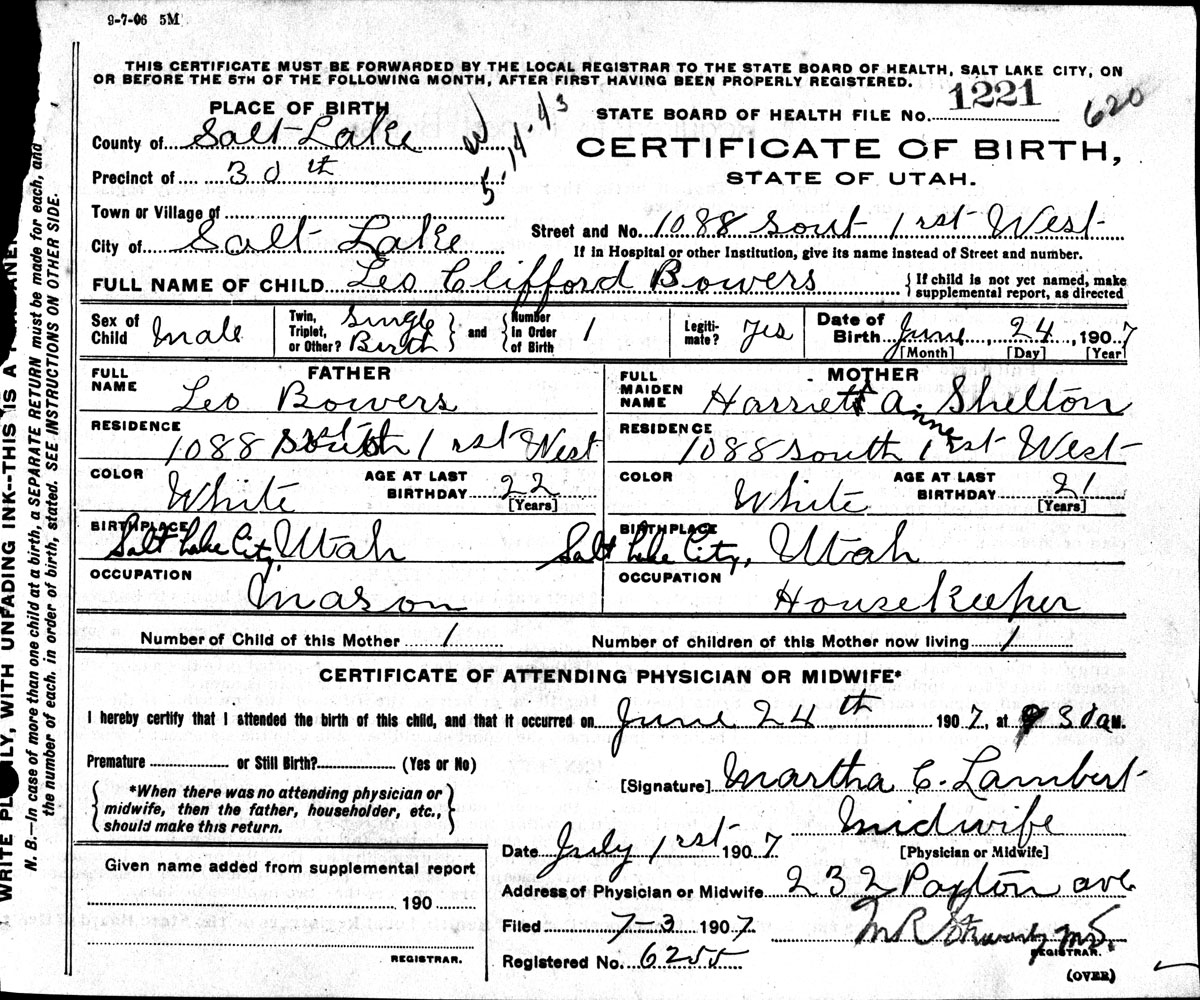 9-7-06 5M
THIS CERTIFICATE MUST BE FORWARDED BY THE LOCAL REGISTRAR TO THE STATE BOARD OF HEALTH, SALT LAKE CITY, ON
OR BEFORE THE 5TH OF THE FOLLOWING MONTH, AFTER FIRST HAVING BEEN PROPERLY REGISTERED.
PLACE OF BIRTH
STATE BOARD OF HEALTH FILE No. 1221 620
County of Salt Lake
5-14-43
CERTIFICATE OF BIRTH,
STATE OF UTAH.
Precinct of 30th
Town or Village of
City of Salt Lake
Street and No. 1088 Sout 1rst West
If in Hospital or other Institution, give its name instead of Street and number.
FULL NAME OF CHILD Leo Clifford Bowers
If child is not yet named, make supplemental report, as directed
Sex of Child Male
Twin, Triplet, or Other? Single Birth and Number in Order of Birth 1
Legitimate? Yes
Date of Birth June, 24, 1907
[Month] [Day] [Year]
FATHER
FULL NAME Leo Bowers
RESIDENCE 1088 South 1rst West
COLOR White
AGE AT LAST BIRTHDAY 22 [Years]
BIRTHPLACE Salt Lake City, Utah
OCCUPATION Mason
MOTHER
FULL MAIDEN NAME Harriett Anne Shelton
RESIDENCE 1088 South 1rst West
COLOR White
AGE AT LAST BIRTHDAY 21 [Years]
BIRTHPLACE Salt Lake City, Utah
OCCUPATION Housekeeper
Number of Child of this Mother 1
Number of children of this Mother now living 1
CERTIFICATE OF ATTENDING PHYSICIAN OR MIDWIFE*
I hereby certify that I attended the birth of this child, and that it occurred on June 24th 1907, at 9 30 a M.
Premature or Still Birth? (Yes or No)
*When there was no attending physician or
midwife, then the father, householder, etc.,
should make this return.
[Signature] Martha C. Lambert
Midwife
[Physician or Midwife]
Date July 1rst 1907
Address of Physician or Midwife 232 Paxton ave
Filed 7-3 1907
M R Stewart MD.
REGISTRAR.
Registered No. 6255
(OVER)
Given name added from supplemental report
190
REGISTRAR.
N. B.—In case of more than one child at a birth, a SEPARATE RETURN must be made for each, and
the number of each, in order of birth, stated. SEE INSTRUCTIONS ON OTHER SIDE.
WITH UNFADING INK--THIS IS A